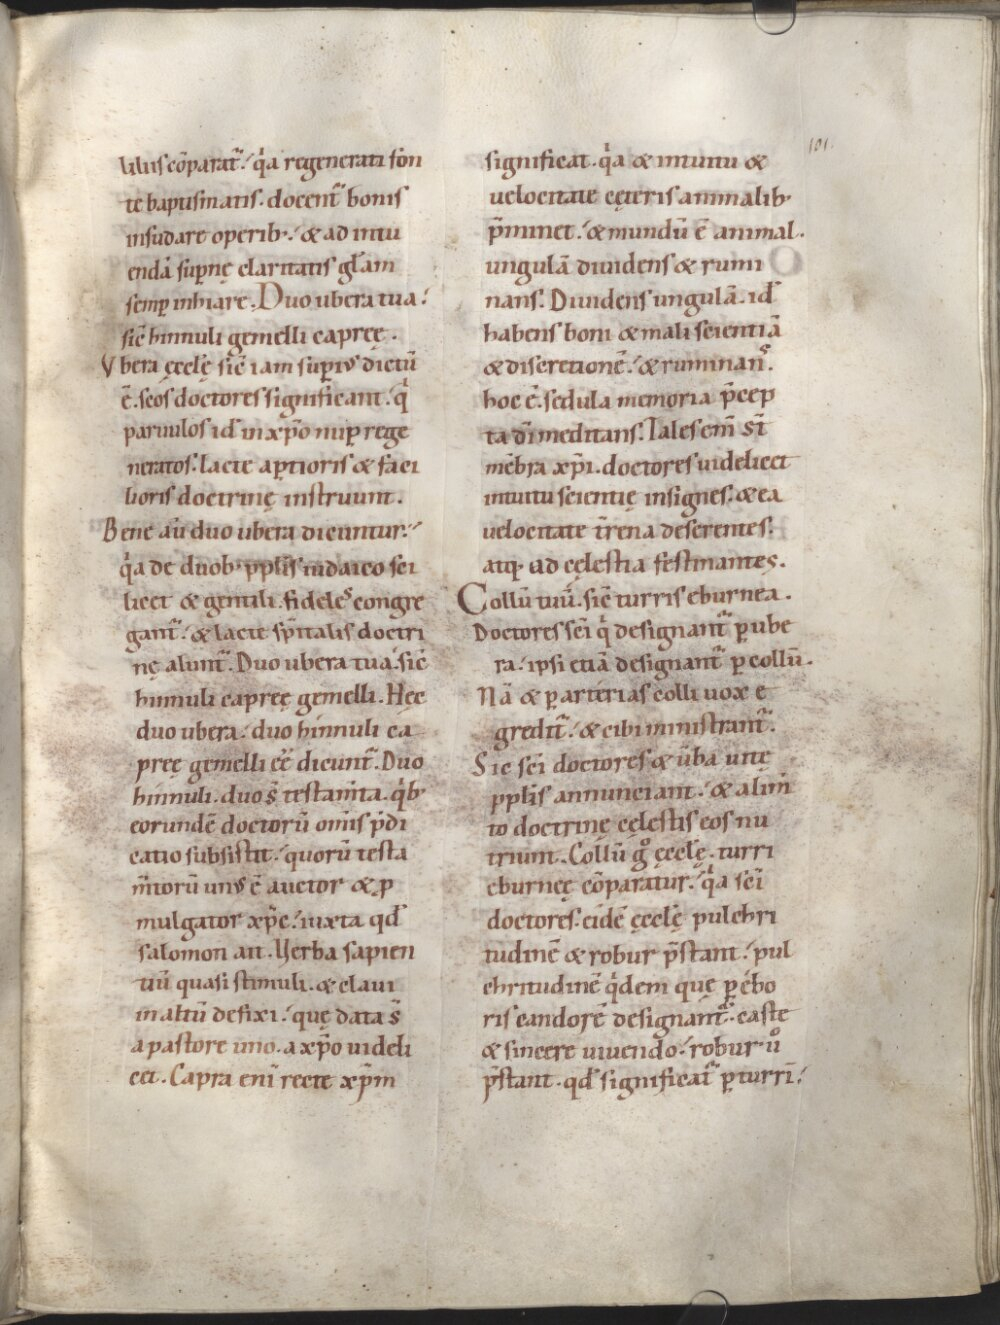 liliis cōparat᷑. q̓a regenerati fon
te baptismatis. docent᷑ bonis
insudare operib᷒. & ad intu
endā sup̱nę claritatis gl̄am
semp̱ inhiare. Duo ubera tua.
sic̄ hinnuli gemelli capreę.
Vbera ęccl̄ę sic̄ iam sup̱ius dictū
ē. scōs doctores significant. q̓
paruulos id̄ in xp̄o nup̱ rege
neratos. lacte ap̱tioris & faci
lioris doctrinę instruunt.
Bene aū duo ubera dicuntur.
q̓a de duob᷒ ppl̄is iudaico sci
licet & gentili. fideles congre
gant᷑. & lacte sp̄italis doctri
nę alunt᷑. Duo ubera tua sic̄
hinnuli capreę gemelli. Hęc
duo ubera. duo hinnuli ca
preę gemelli ēē dicunt᷑. Duo
hinnuli. duo s̄ testam̄ta. q̓b᷒
eorundē doctorū om̄is p̄di
catio subsistit. quorū testa
m̄torū unus ē auctor & ꝓ
mulgator xp̄c. iuxta qd̄
salomon ait. Verba sapien
tiū quasi stimuli. & claui
in altū defixi. quę data s̄
a pastore uno. a xp̄o uideli
cet. Capra enī recte xp̄m
101.
significat. q̓a & intuitu &
uelocitate cęteris animalib᷒
p̄minet. & mundū ē animal.
ungulā diuidens & rumi
nans. Diuidens ungulā. id̄
habens boni & mali scientiā
& discretionē. & ruminans.
hoc ē. sedula memoria p̄cep
ta dī meditans. Tales em̄ st̄
mēbra xp̄i. doctores uidelicet
intuitu scientię insignes. & ea
uelocitate t̄rena deserentes.
atq᷒ ad cęlestia festinantes.
Collū tuū. sic̄ turris eburnea.
Doctores scī q̓ designant᷑ p̱ ube
ra. ipsi etiā designant᷑ p̱ collū.
Nā & p̱ arterias colli uox e
gredit᷑. & cibi ministrant᷑.
Sic scī doctores & ūba uitę
ppl̄is annunciant. & alim̄
to doctrinę cęlestis eos nu
triunt. Collū g̊ ęccl̄ę. turri
eburneę cōparatur. q̓a scī
doctores. eidē ęccl̄ę pulchri
tudinē & robur p̄stant. pul
chritudinē q̓dem quę p̱ ebo
ris candorē designant᷑. caste
& sincere uiuendo. robur ů
p̄stant. qd̄ significat᷑ p̱ turrī.